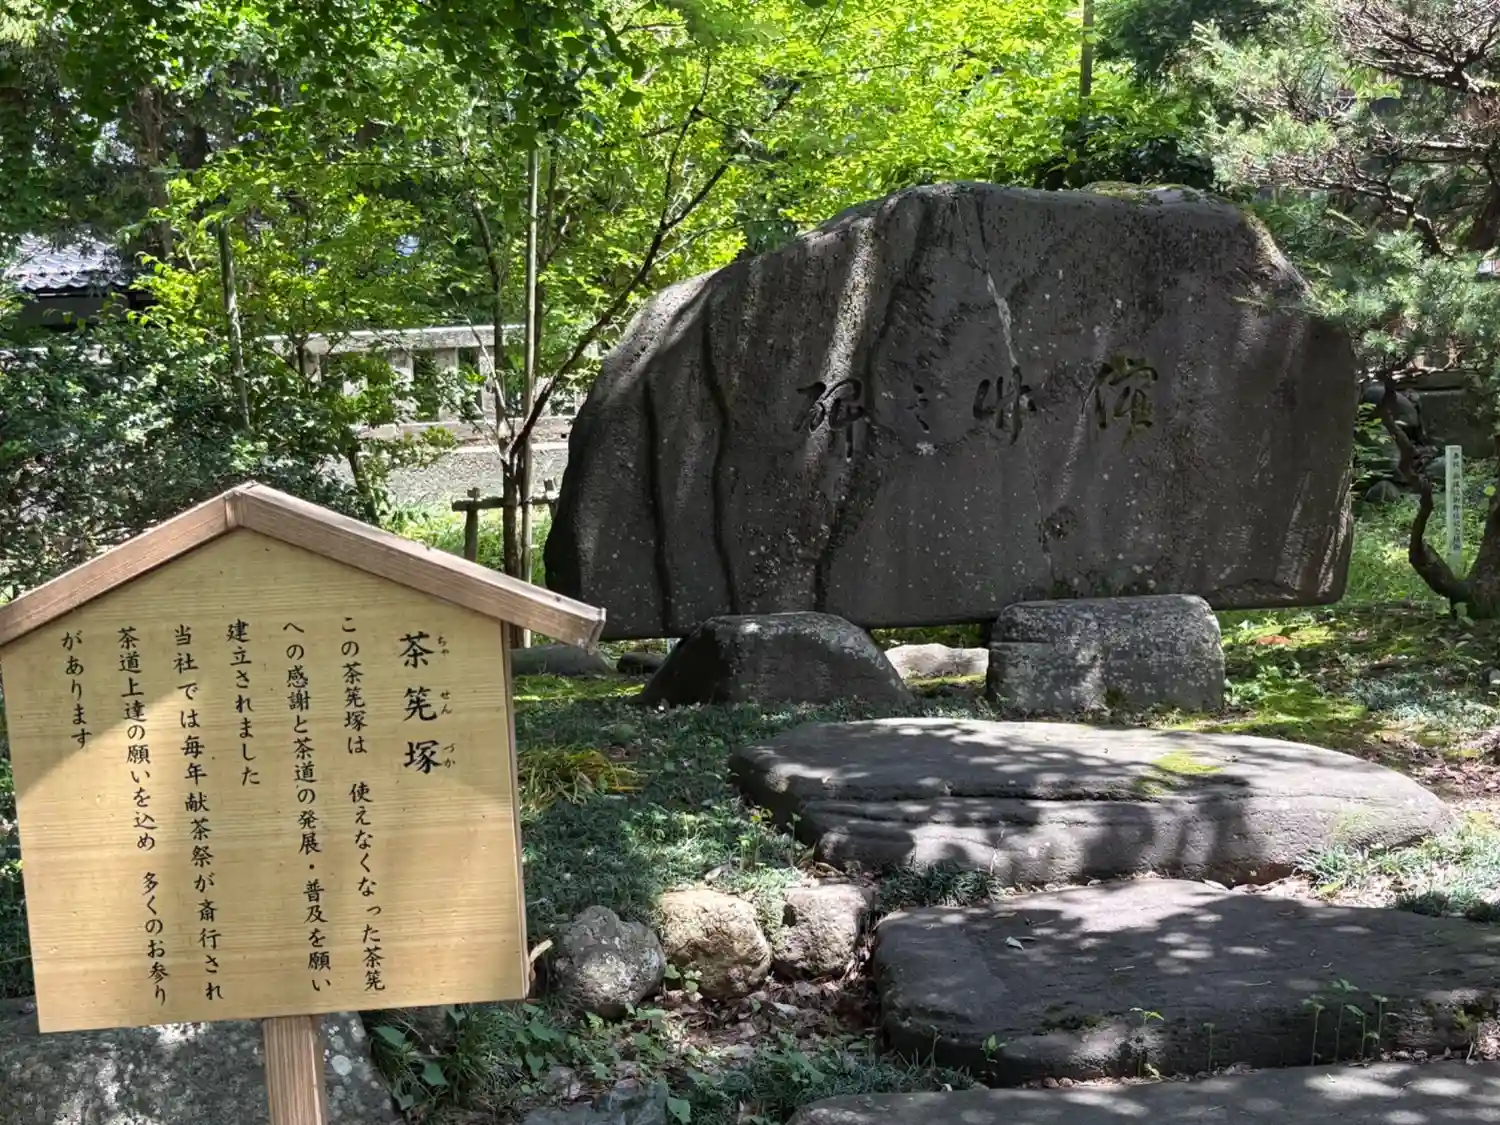 茶筅塚
ちゃせんづか
この茶筅塚は　使えなくなった茶筅
への感謝と茶道の発展・普及を願い
建立されました
当社では毎年献茶祭が斎行され
茶道上達の願いを込め　多くのお参り
があります
之碑